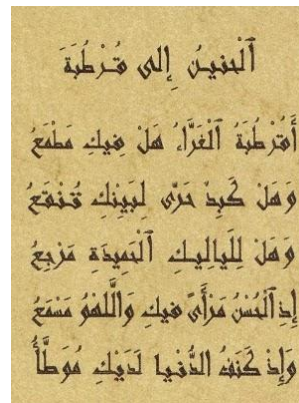 ٱلْحَنِينُ إِلَى قُرْطُبَةَ
أَقُرْطُبَةُ ٱلْغَرَّاءُ هَلْ فِيكِ مَطْمَعُ
وَهَلْ كَبِدٌ حَرَّى لِبَيْنِكِ تُنْقَعُ
وَهَلْ لِلَيَالِيكِ ٱلْحَمِيدَةِ مَرْجِعُ
إِذِ ٱلْحُسْنُ مَرْأًى فِيكِ وَٱللَّهْوُ مَسْمَعُ
وَإِذْ كَنَفُ الدُّنْيَا لَدَيْكِ مُوَطَّأُ